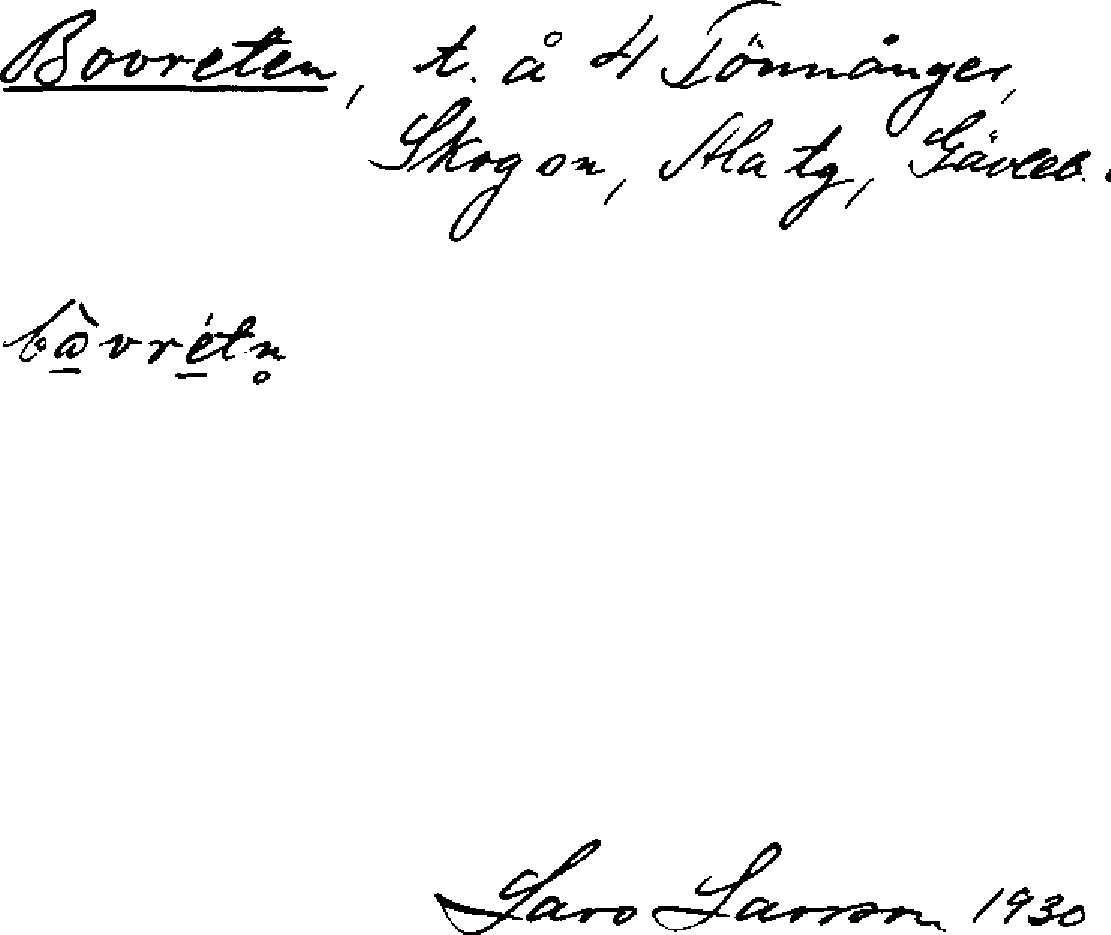 Bovreten, t. å 4 Tönnånger,
Skog sn, Ala tg, Gävleb.
bä̀vrétn̥
Lars Larsson 1930